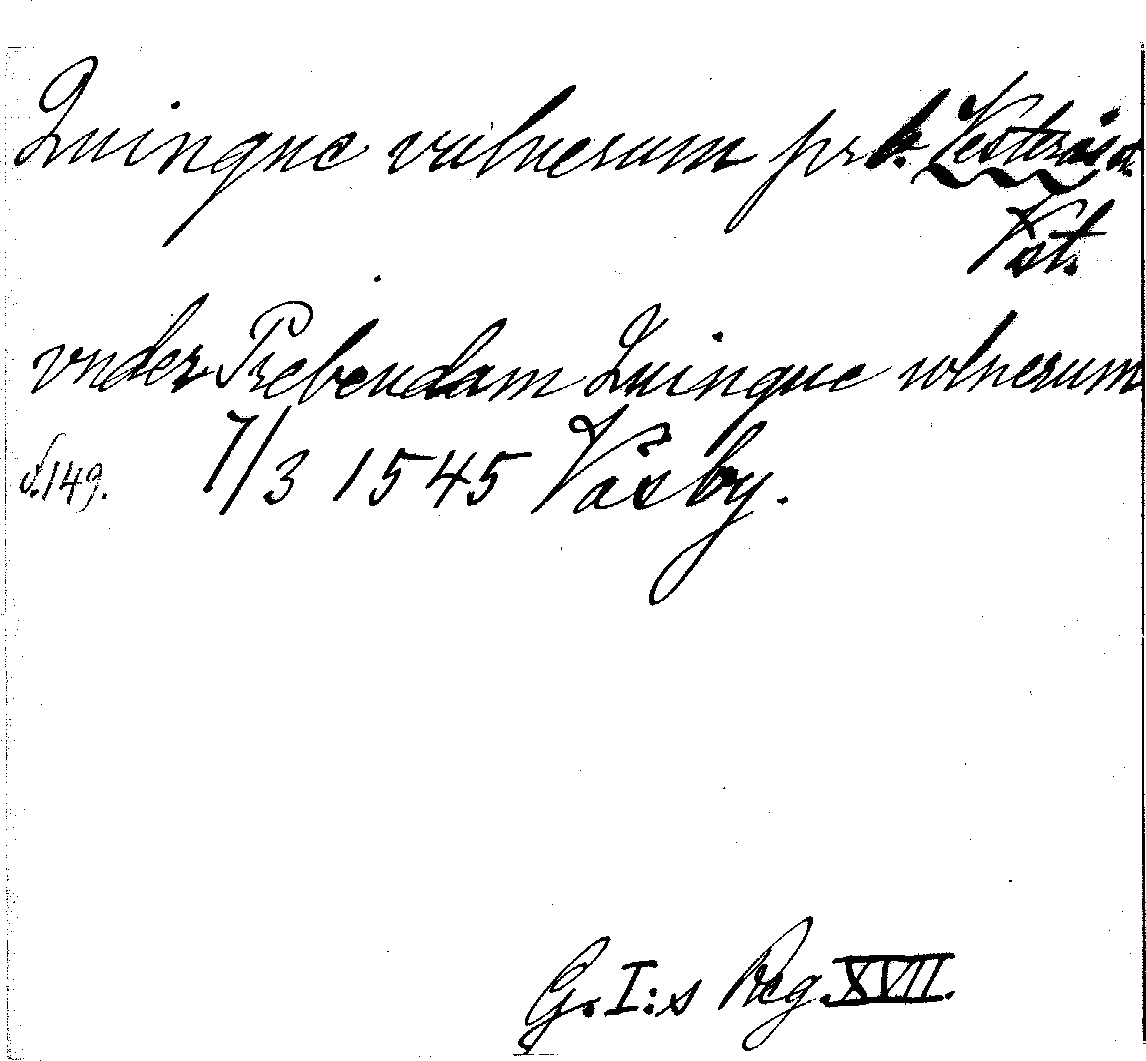 Quinque vulnerum prb. Vesterås st.
Vst.
vnder Prebendam Quinque wlnerum
s.149. 7/3 1545 Våsby.
G.I:s Reg. XVII.